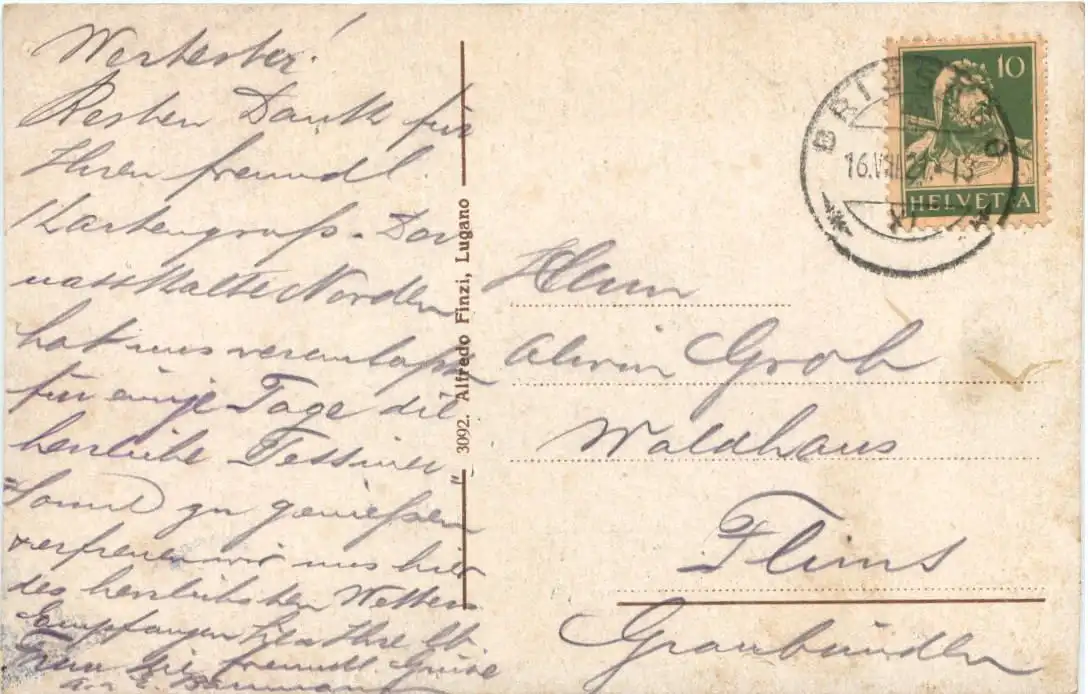 Wertester!
Besten Dank für
Ihren freundl
Kartengruß. Das
nasskalte Norden
hat uns veranlaßt
für einige Tage die
herrliche Tessiner
Sonne zu genießen
erfreuen wir uns hier
des herrlichsten Wetters
Empfangen Sie & Ihre lb
Frau die freundl. Grüsse
3092. Alfredo Finzi, Lugano
BRISSAGO
16.VIII.21.-13
XI
10
HELVETIA
Herrn
Alwin Grob
Waldhaus
Flims
Graubünden